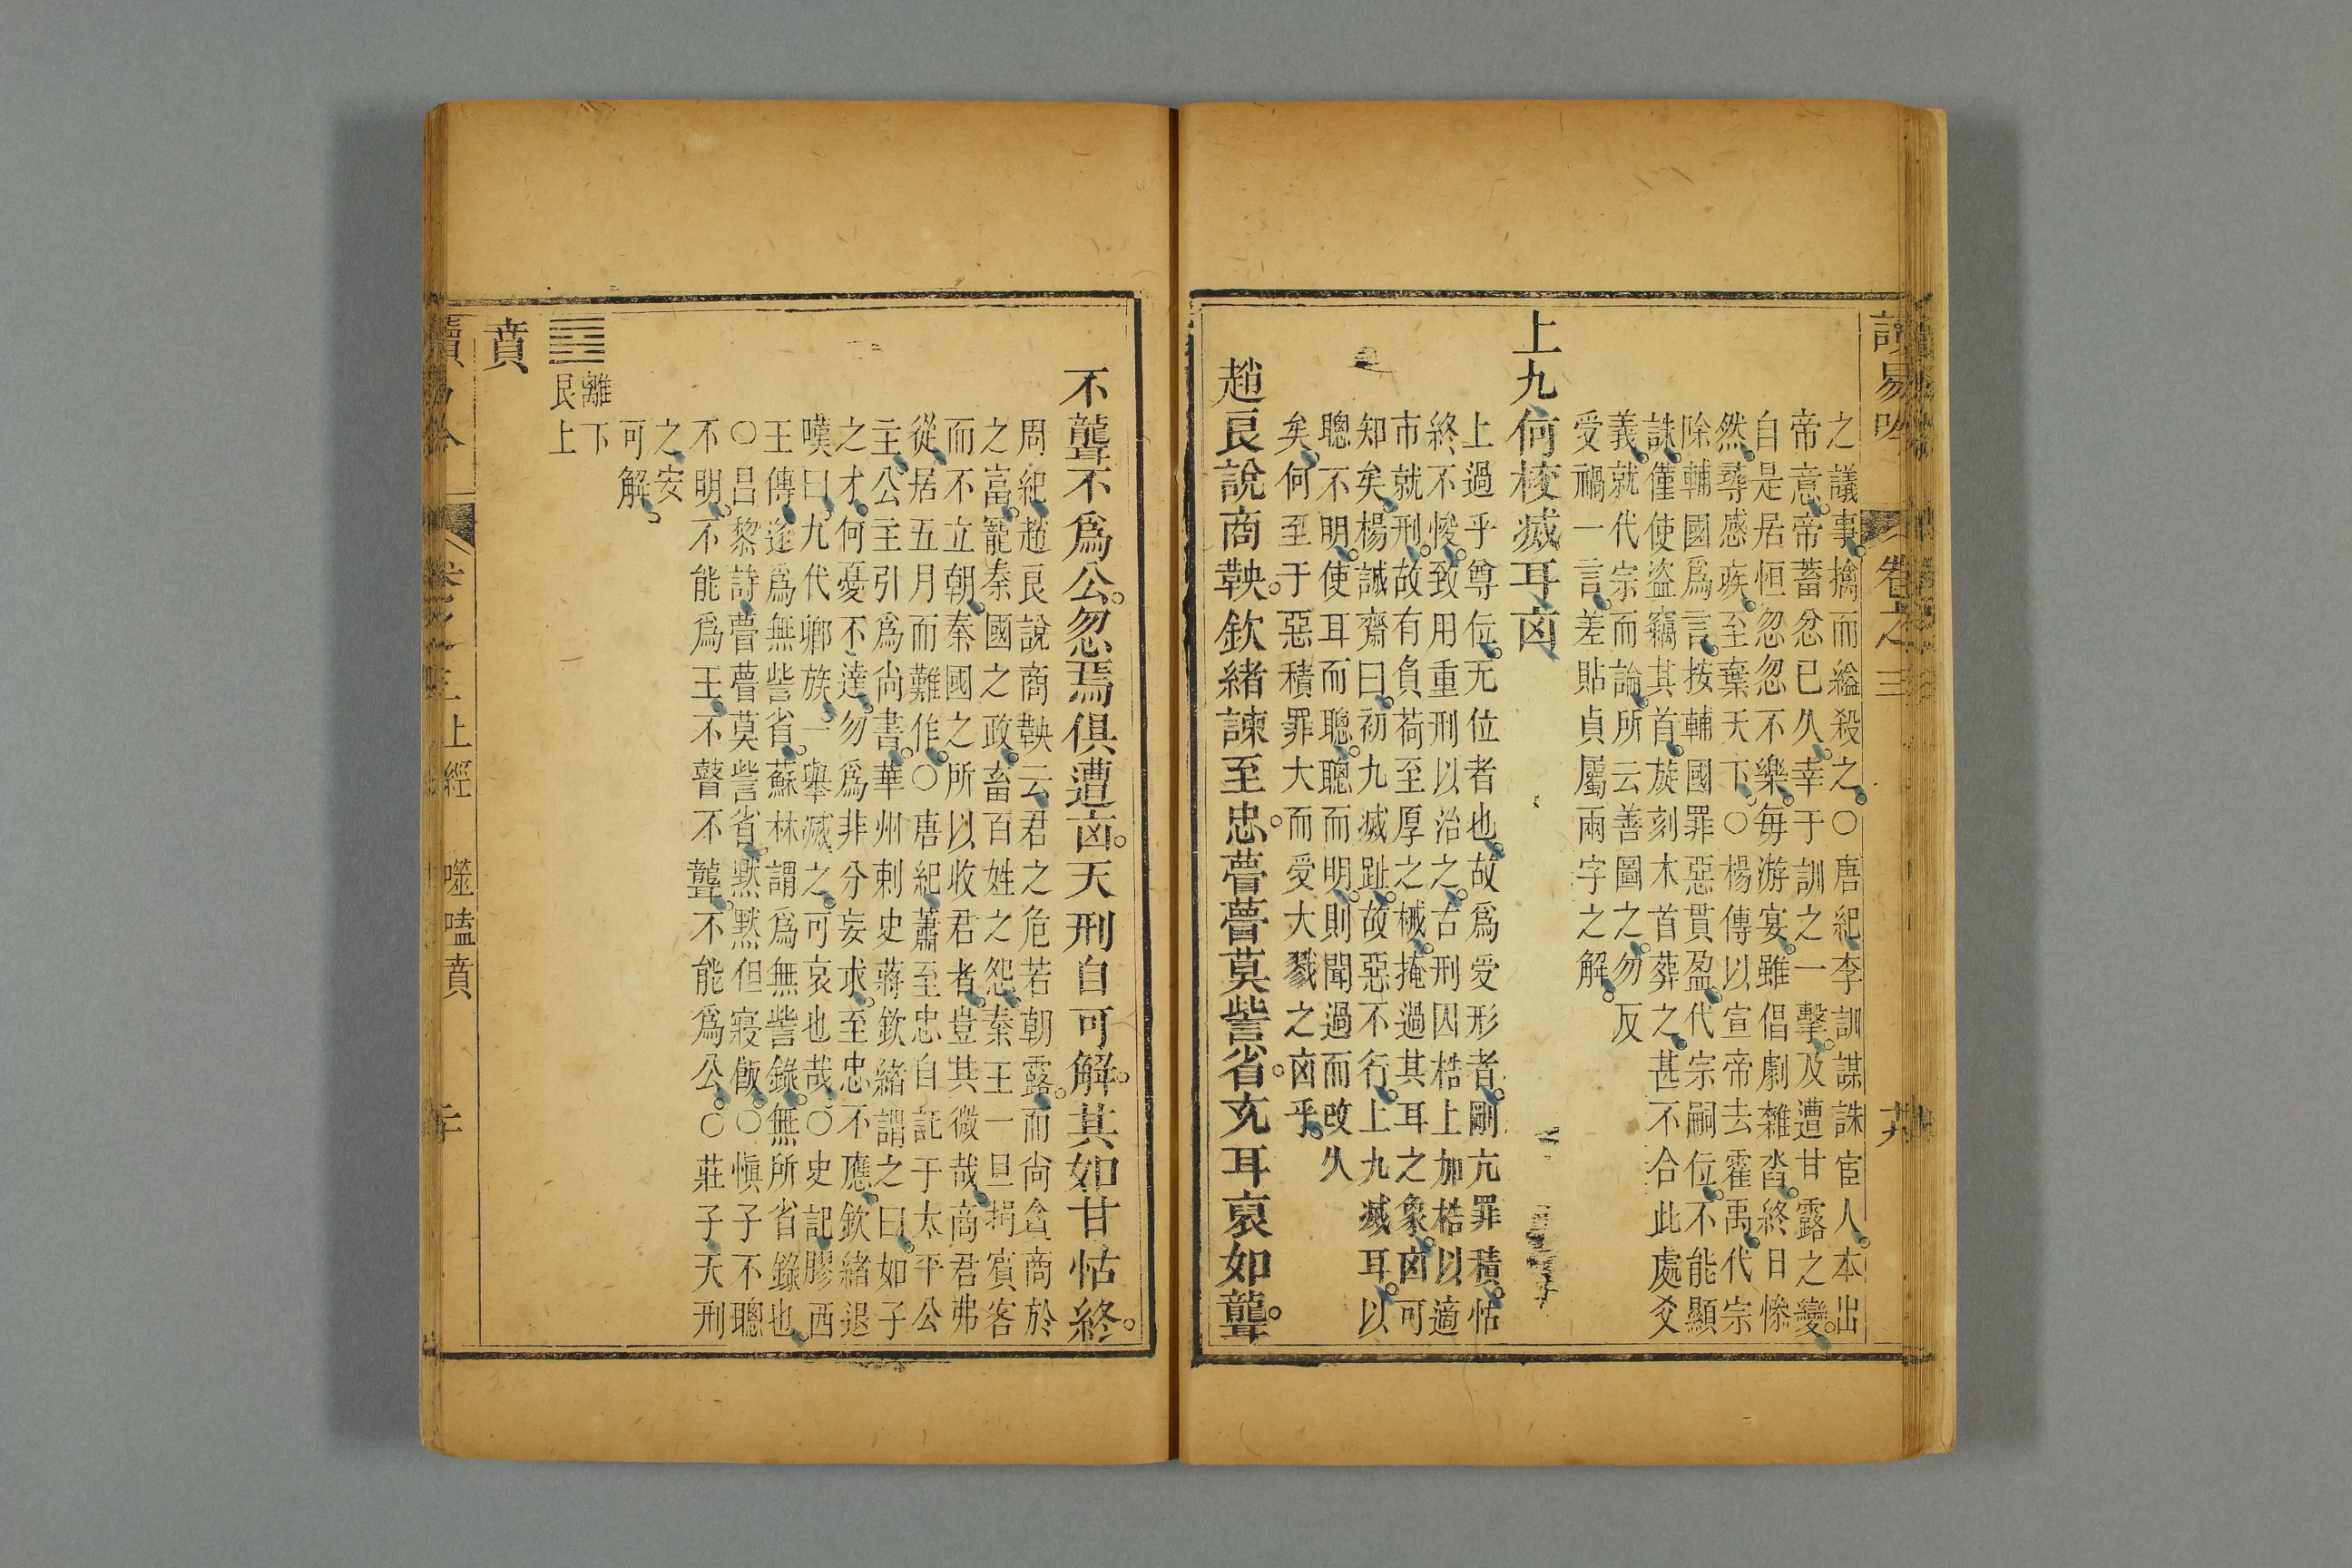 讀易吟 卷之三 十九
之議事擒而縊殺之○唐紀李訓謀誅宦人本出
帝意帝蓄忿已久幸于訓之一擊及遭甘露之變
自是居恒忽忽不樂每游宴雖倡劇雜沓終日慘
然蕁感疾至棄天下○楊傳以宣帝去霍禹代宗
除輔國爲言按輔國罪惡貫盈代宗嗣位不能顯
誅僅使盜竊其首旋刻木首葬之甚不合此處爻
義就代宗而論所云善圖之勿反
受禍一言差貼貞厲兩字之解
上九何校滅耳凶
上過乎尊位无位者也故爲受形者剛亢罪積怙
終不悛致用重刑以治之古刑囚梏上加梏以適
市就刑故有負荷至厚之械掩過其耳之象凶可
知矣楊誠齋曰初九滅趾故惡不行上九滅耳以
聰不明使耳而聰聰而明則聞過而改久
矣何至于惡積罪大而受大戮之凶乎
趙良說商鞅欽緒諫至忠瞢瞢莫訾省充耳裒如聾
不聾不爲公忽焉俱遭凶天刑自可解其如甘怙終
周紀趙良說商鞅云君之危若朝露而尚貪商於
之富寵秦國之政畜百姓之怨秦王一旦捐賓客
而不立朝秦國之所以收君者豈其微哉商君弗
從居五月而難作○唐紀蕭至忠自託于太平公
主公主引爲尚書華州刺史蔣欽緒謂之曰如子
之才何憂不達勿爲非分妄求至忠不應欽緒退
嘆曰九代鄉族一舉滅之可哀也哉○史記膠西
王傳遂爲無訾省蘇林謂爲無訾錄無所省錄也
○昌黎詩瞢瞢莫訾省默默但寢飯○慎子不聰
不明不能爲王不瞽不聾不能爲公○莊子天刑
之安
可解
離下
艮上
賁
上經 噬嗑賁 二十